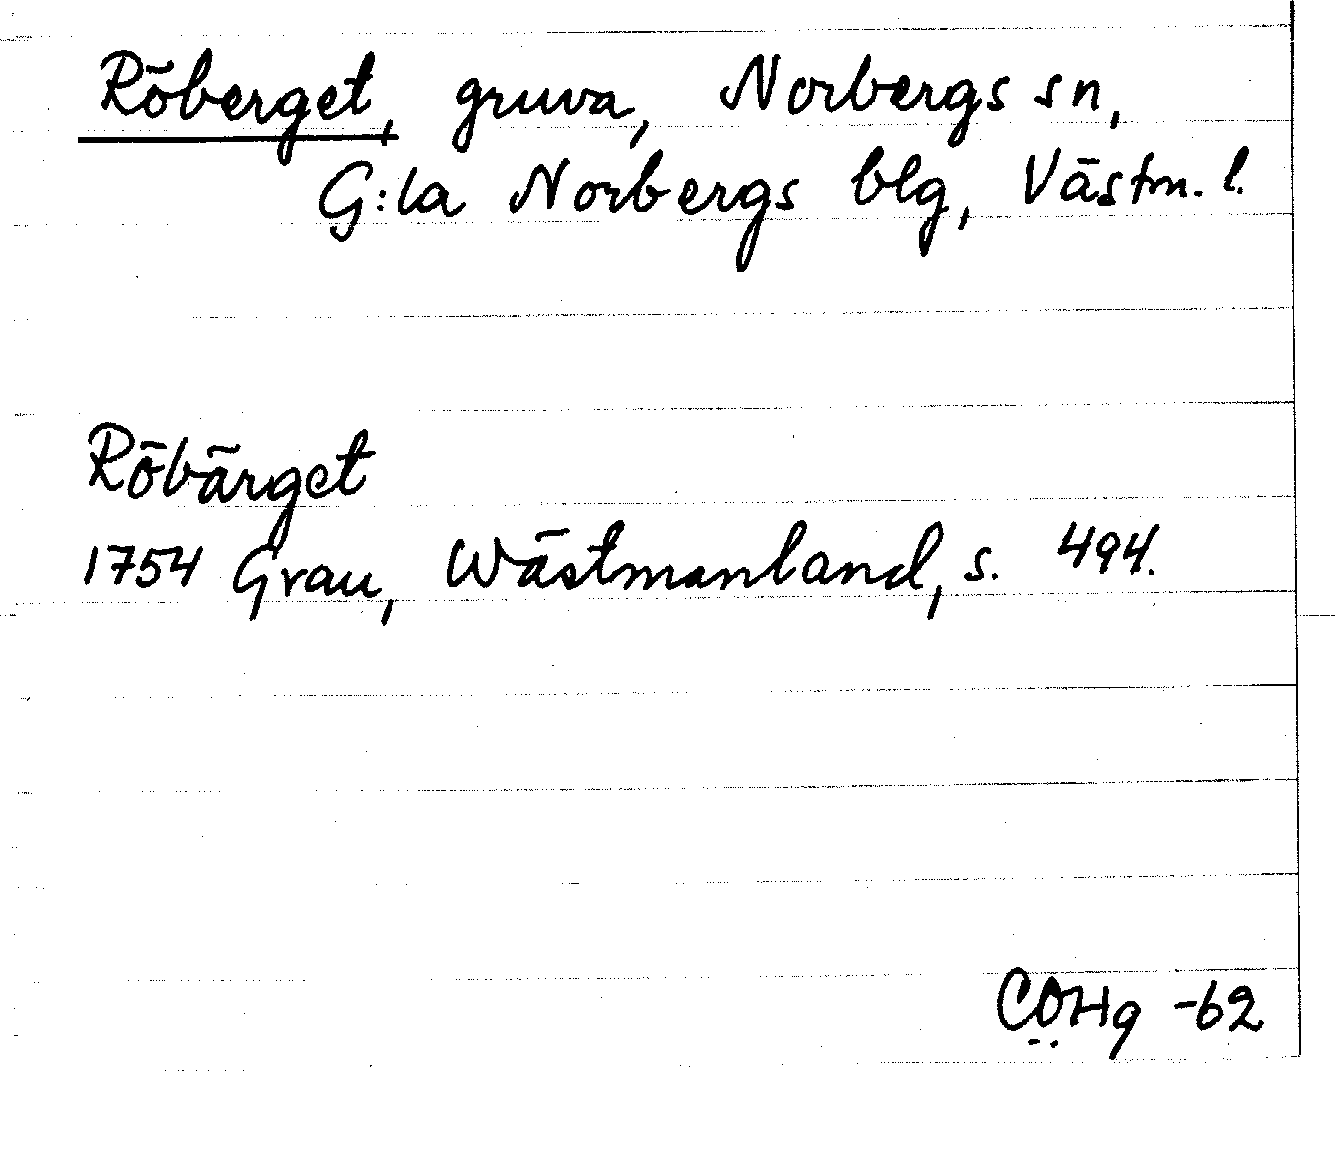 Röberget, gruva, Norbergs sn,
G:la Norbergs blg, Västm. l.
Röbärget
1754 Grau, Wästmanland, s. 494.
COHg -62